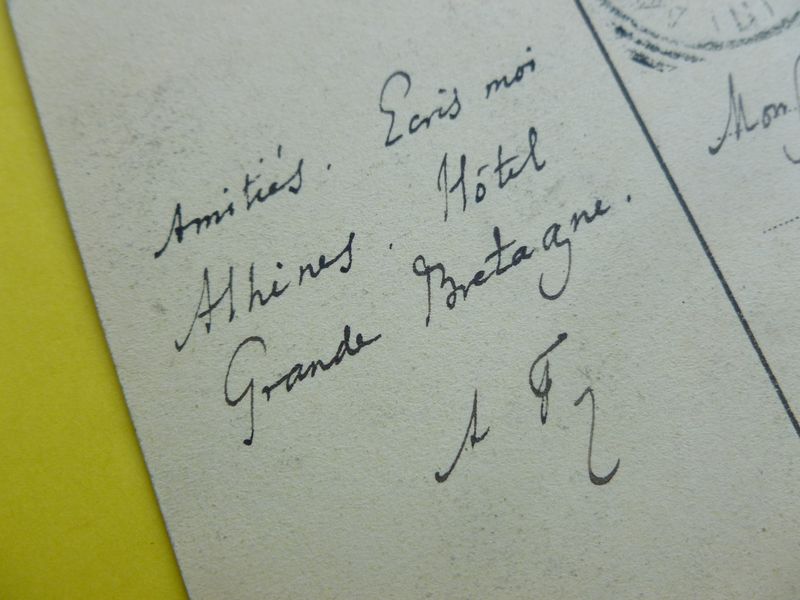 Amitiés. Ecris moi
Athènes. Hôtel
Grande Bretagne.
A F